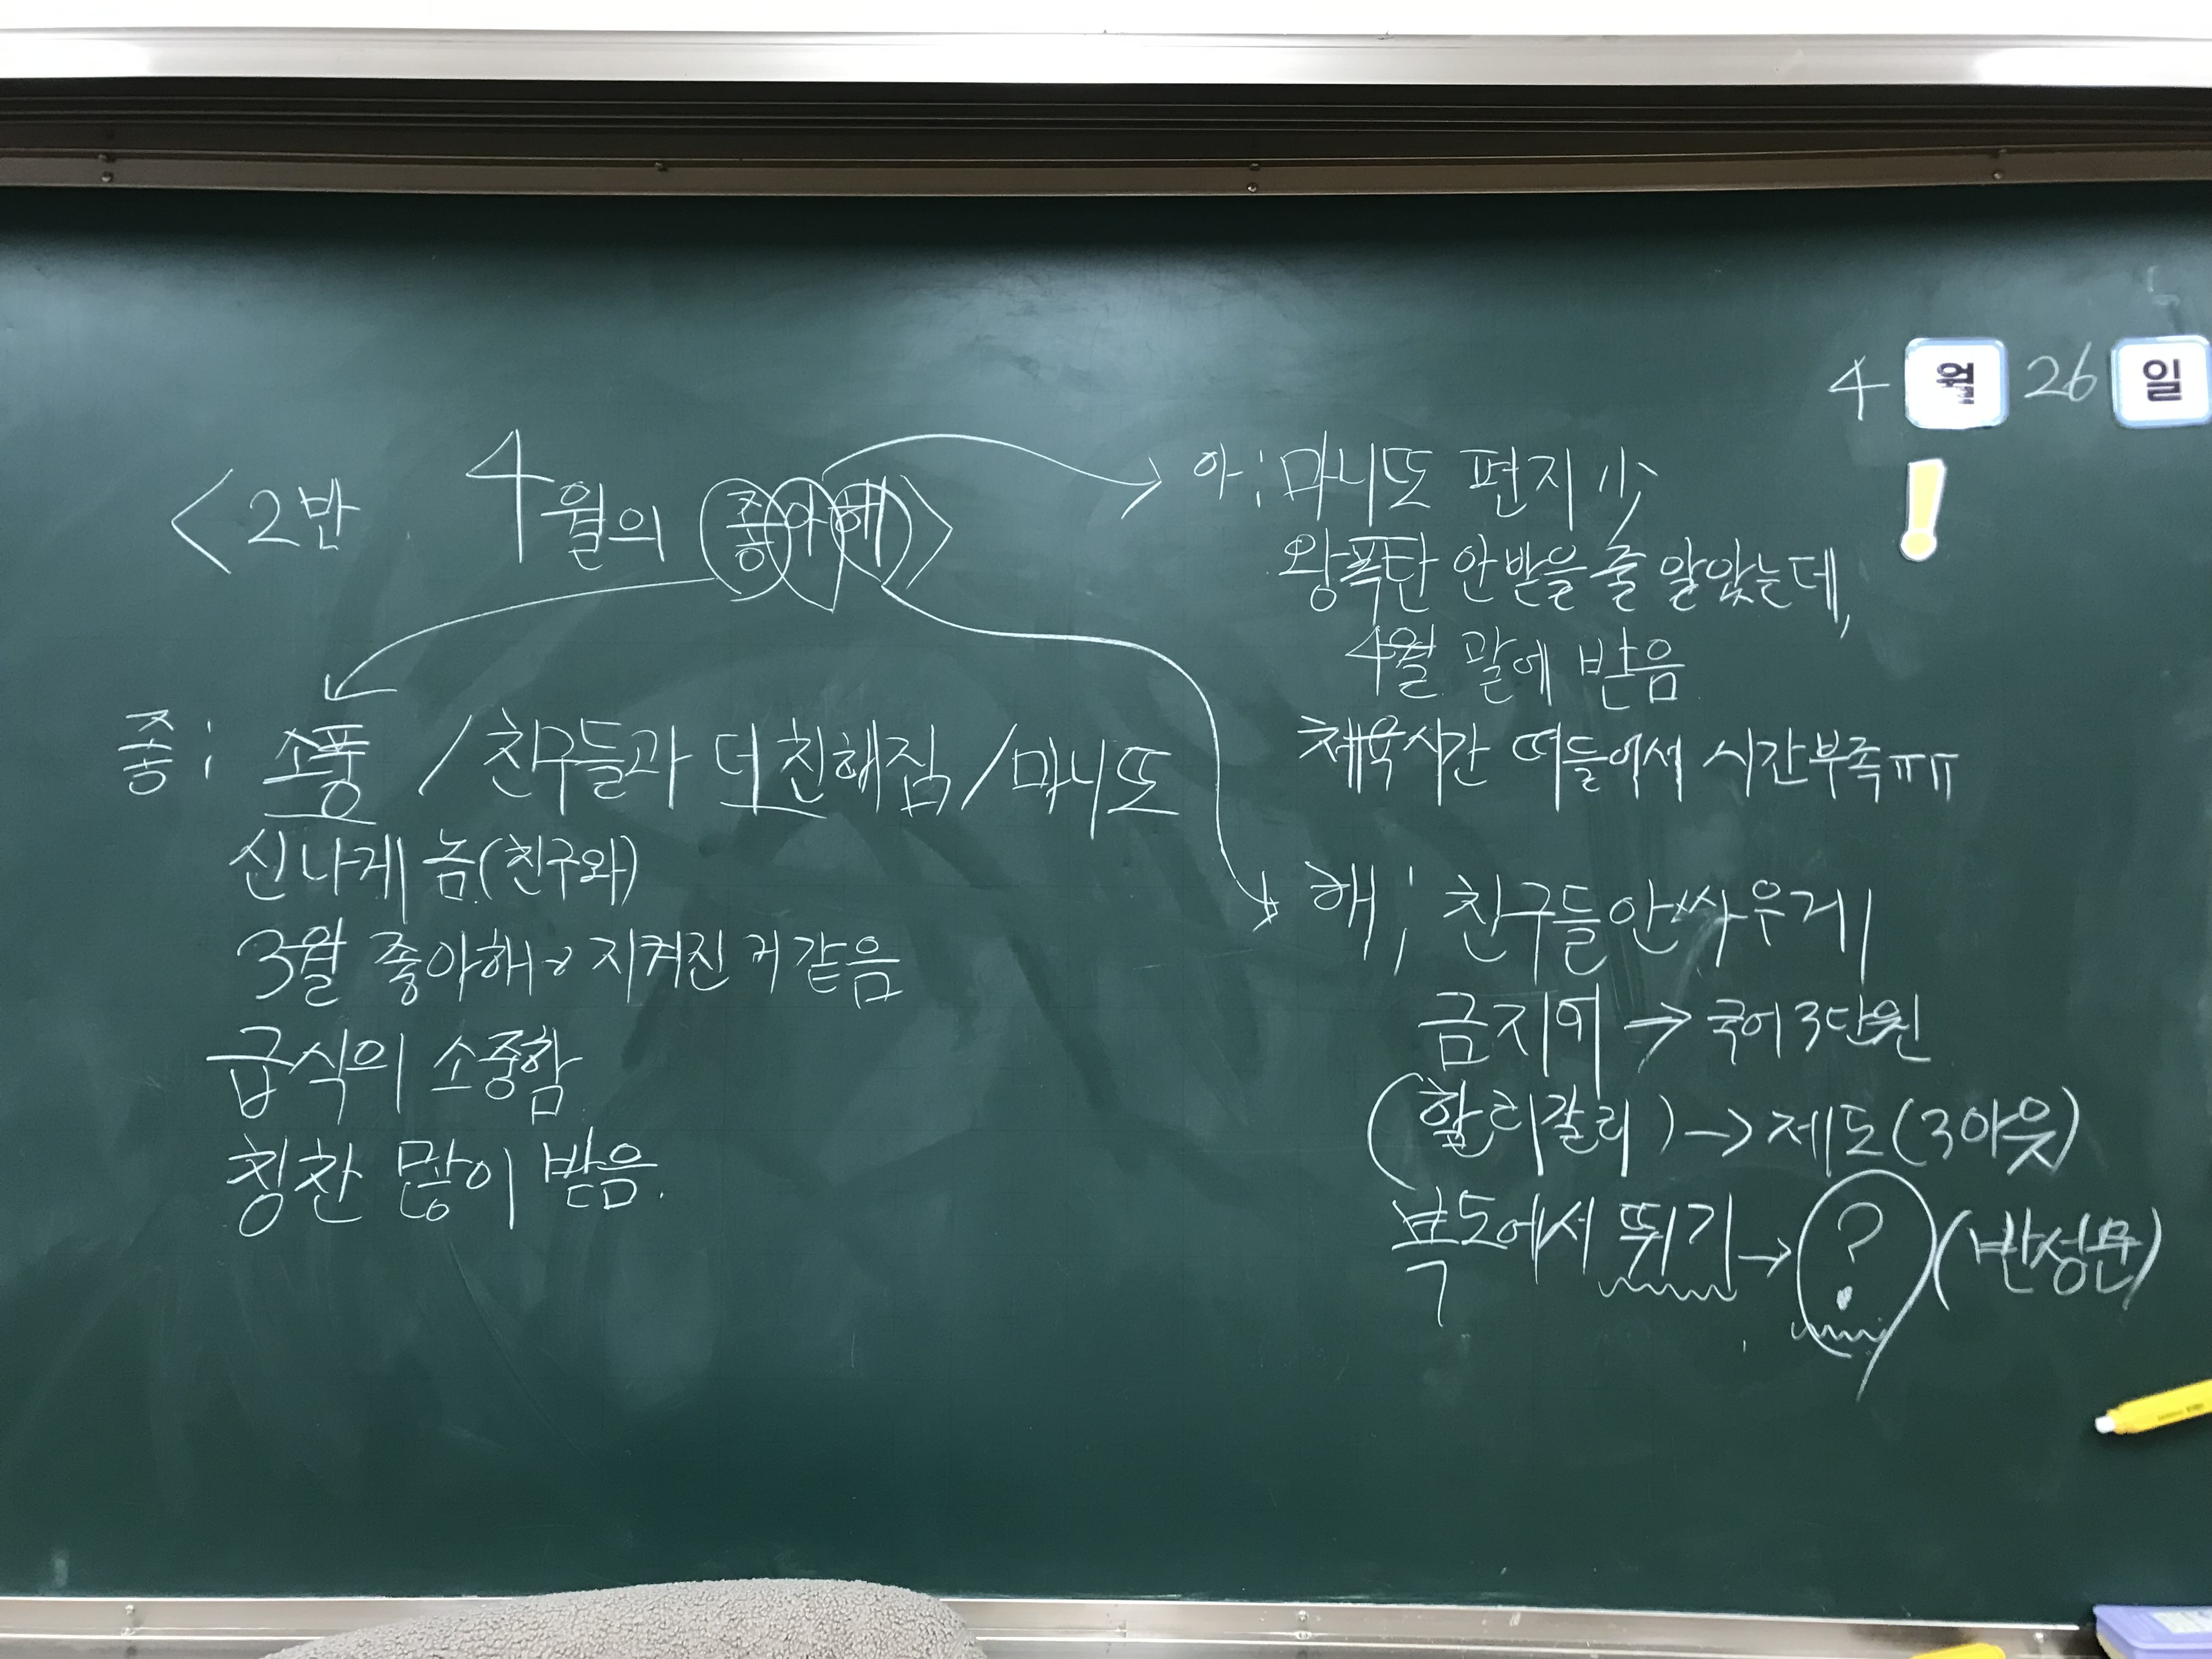 4월 26일
<2반 4월의 좋아해>
좋: 소풍 / 친구들과 더 친해짐 / 마니또
신나게 놈(친구와)
3월 좋아해 지켜진 거 같음
급식의 소중함
칭찬 많이 받음.
아: 마니또 편지 少
왕폭탄 안 받을 줄 알았는데,
4월 말에 받음
체육시간 떠들어서 시간부족ㅠㅠ
해; 친구들 안싸우게
금지어 → 국어 3단원
(할리갈리) → 제도(3아웃)
복도에서 뛰기 → ? (반성문)